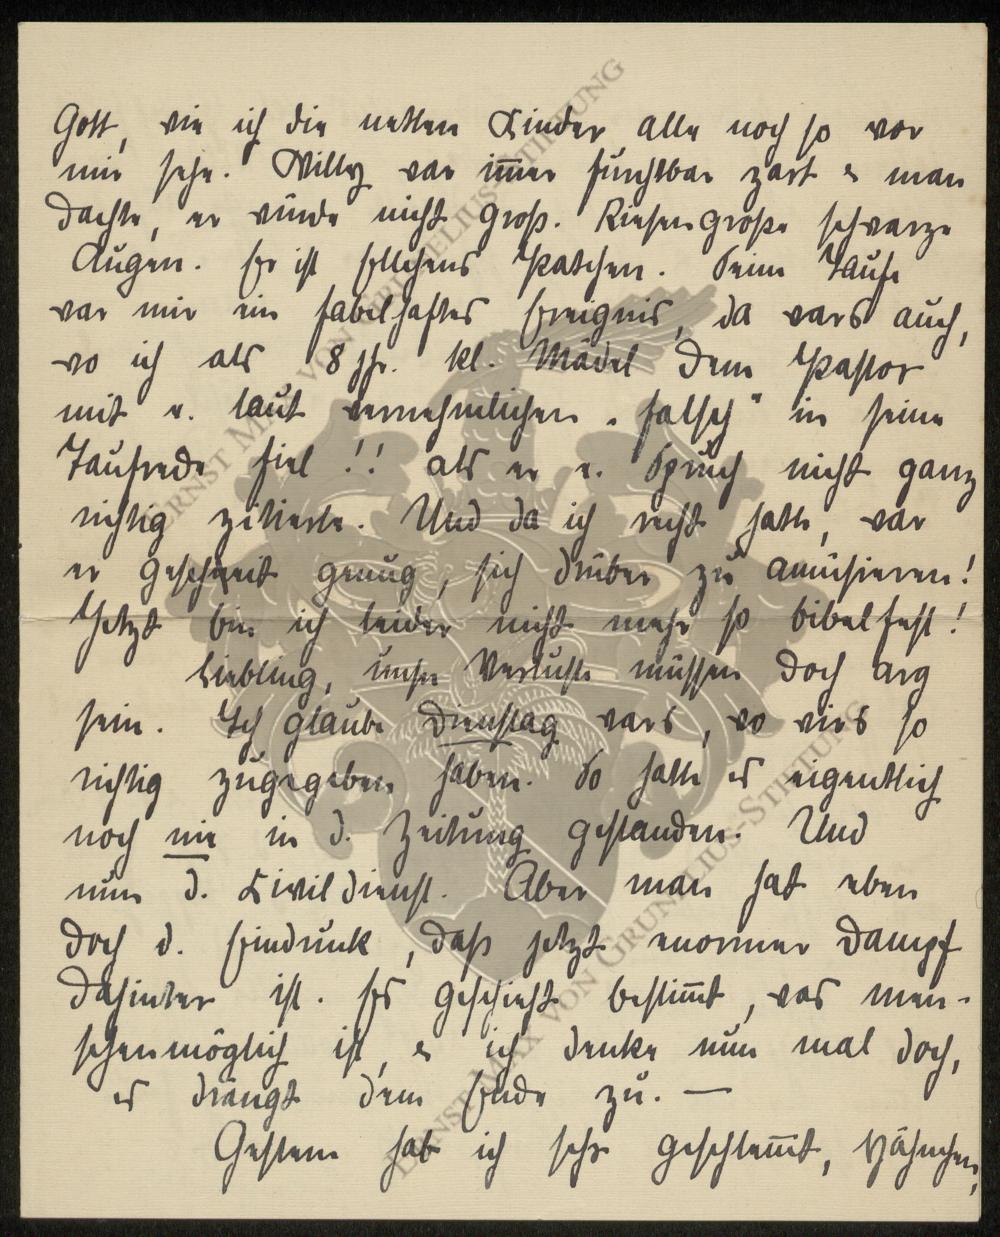 Gott, wie ich die netten Kinder alle noch so vor
mir sehe. Willy war im̅er furchtbar zart & man
dachte, er würde nicht groß. Riesengroße schwarze
Augen. Er ist Ellchens Patchen. Seine Taufe
war mir ein fabelhaftes Ereignis, da wars auch,
wo ich als 8 jhr. kl. Mädel dem Pastor
mit e. laut vernehmlichen „falsch" in seine
Taufrede fiel!! als er e. Spruch nicht ganz
richtig zitierte. Und da ich recht hatte, war
er gescheit genug, sich drüber zu amüsieren!
Jetzt bin ich leider nicht mehr so bibelfest!
Liebling, unsre Verluste müssen doch arg
sein. Ich glaube Dienstag wars, wo wirs so
richtig zugegeben haben. So hatte es eigentlich
noch nie in d. Zeitung gestanden. Und
nun d. Zivildienst. Aber man hat eben
doch d. Eindruck, daß jetzt enormer Dampf
dahinter ist. Es geschieht bestim̅t, was men-
schenmöglich ist, & ich denke nun mal doch,
es drängt dem Ende zu. —
Gestern hab ich sehr geschlem̅t, Hähnchen,
ERNST MAX VON GRUNELIUS-STIFTUNG
ERNST MAX VON GRUNELIUS-STIFTUNG